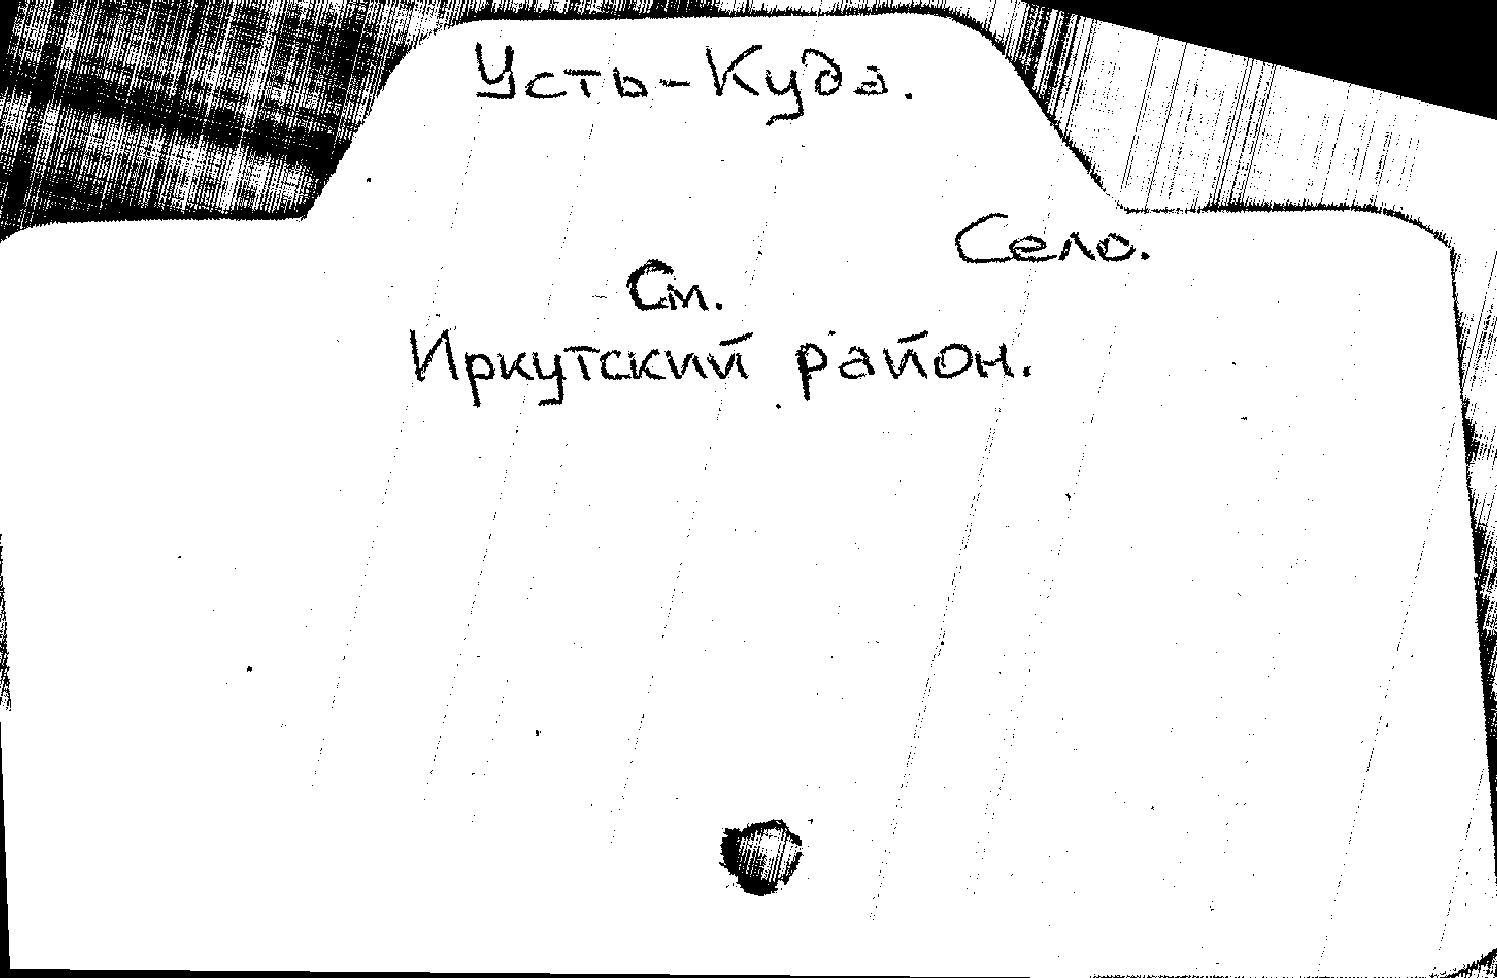 Усть-Куда.
Село.
См.
Иркутский район.